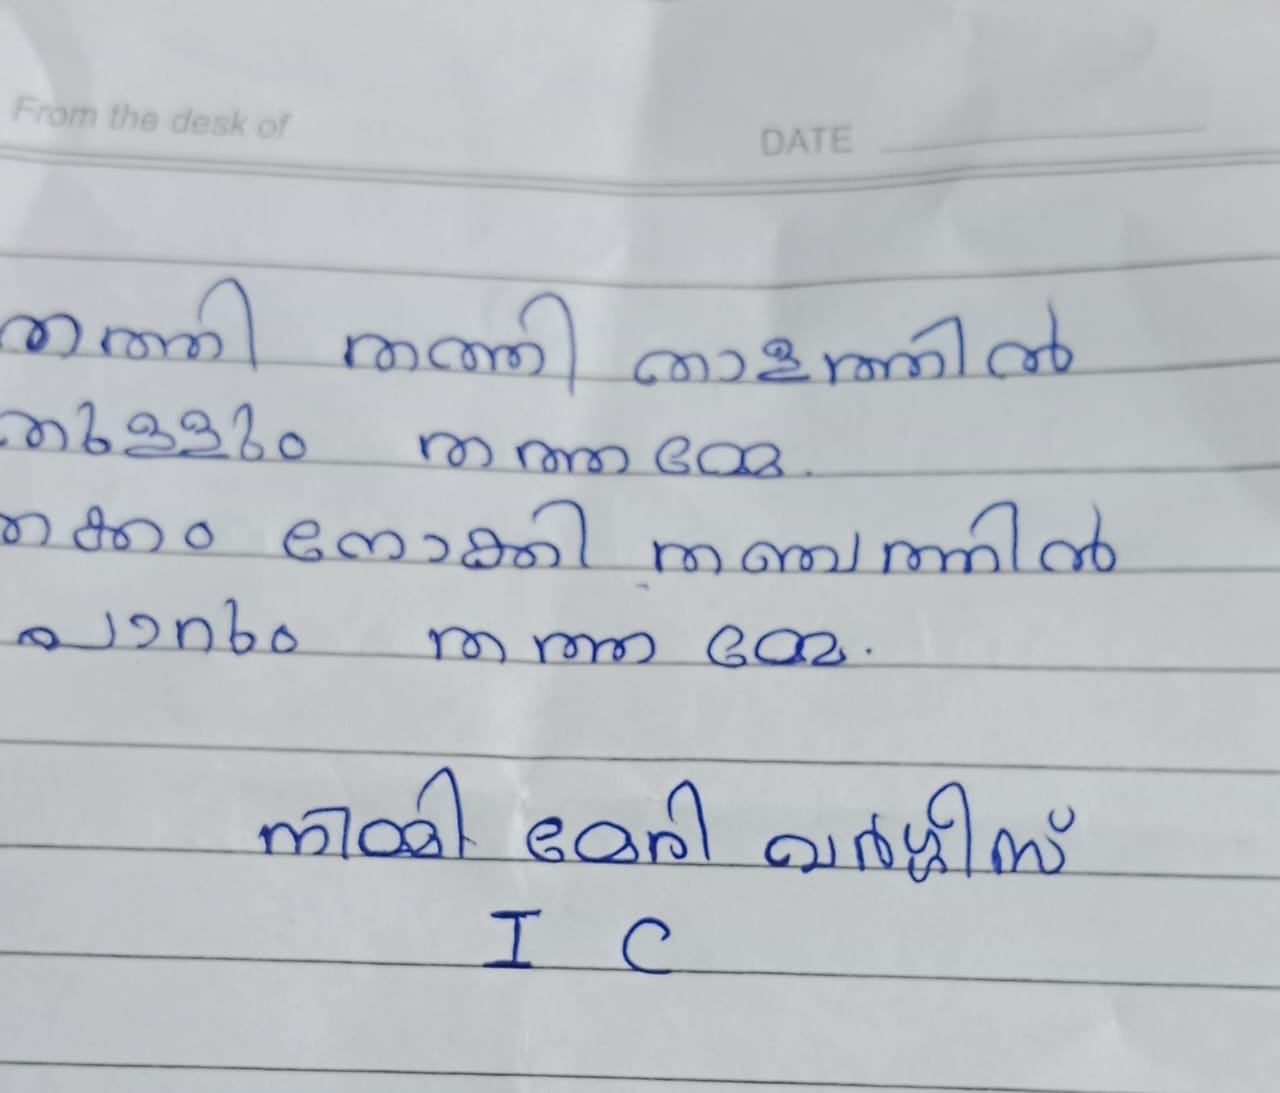 From the desk of
DATE
തത്തി തത്തി താളത്തിൽ
തുള്ളും തത്തമ്മേ.
തക്കം നോക്കി തഞ്ചത്തിൽ
പാറും തത്തമ്മേ.
നിമ്മി മേരി വർഗ്ഗീസ്
I C